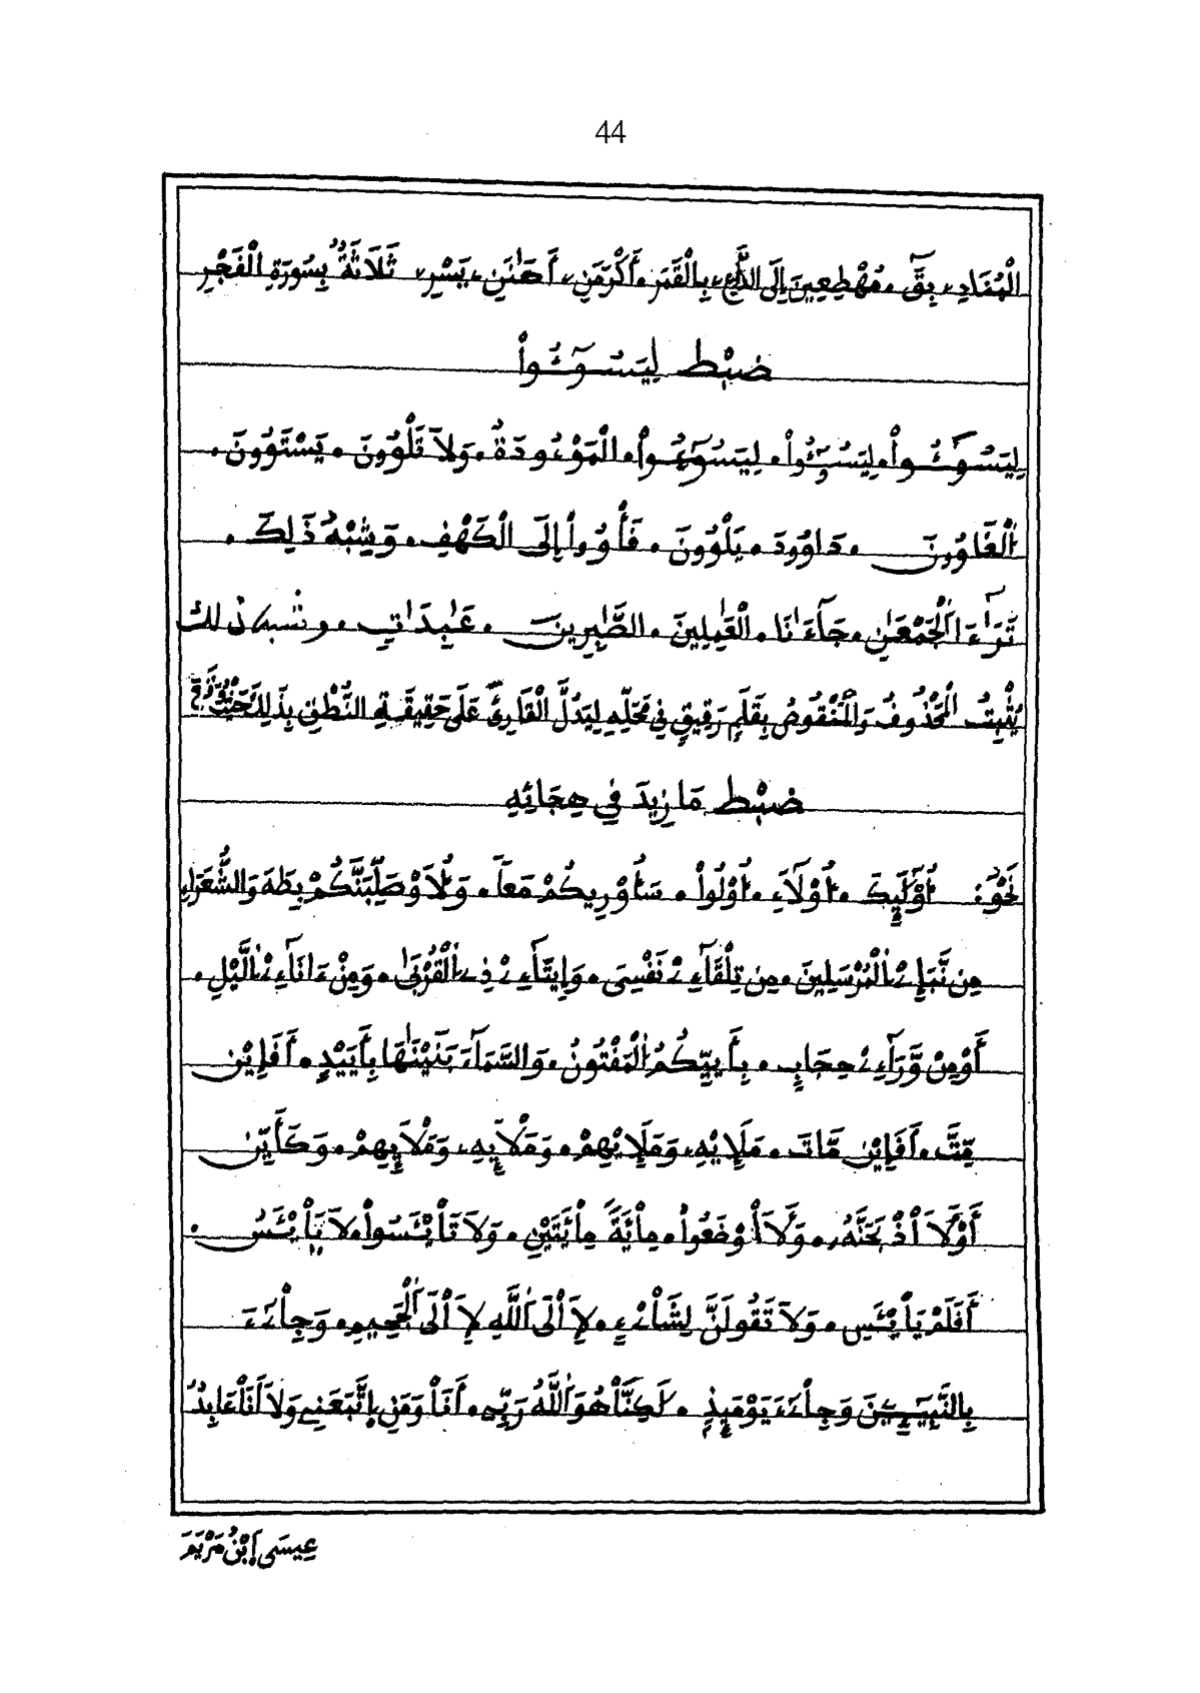 44
الْمُنَادِۦ بِقَٓ • مُهْطِعِينَ إِلَى الدَّاعِۦ بِالْقَمَرِ • أَكْرَمَنِۦ أَهَٰنَنِۦ يَسْرِۦ ثَلَاثَةٌ بِسُورَةِ الْفَجْرِ
ضبط لِيَسُـࣳـُٔواْ
لِيَسُوٓءُواْ • لِيَسُـُٔواْ • لِيَسُوٓءُواْ • الْمَوْءُودَةُ • وَلَا تَلْوُۥنَ • يَسْتَوُۥنَ •
الْغَاوُۥنَ • دَاوُۥدَ • يَلْوُۥنَ • فَأْوُۥاْ إِلَى الْكَهْفِ • وَشِبْهُ ذَلِكَ •
تَرَٰٓءَا اَلْجَمْعَٰنِ • جَآءَٰنَا • الْعَٰمِلِينَ • الصَّٰبِرِينَ • عَٰبِدَٰتٍ • وشبه ذلك
يُثْبِتُ الْمَحْذُوفُ وَالْمَنْقُوصُ بِقَلَمٍ رَقِيقٍ فِي مَحَلِّهِ لِيَدُلَّ الْقَارِئَ عَلَى حَقِيقَةِ النُّطْقِ بِذَلِكَ
ضبط مَا زِيدَ فِي هِجَائِهِ
نَحْوُ: أُوْلَٰٓئِكَ • أُوْلَآءِ • أُوْلُواْ • سَأُوْرِيكُمْ مَعاً • وَلَأُوْصَلِّبَنَّكُمْ بِطَهَ وَالشُّعَرَاءِ
مِن نَّبَإِےْ اِ۬لْمُرْسَلِينَ • مِن تِلْقَآءِےْ نَفْسِى • وَإِيتَآءِےْ ذِے اِ۬لْقُرْبَىٰ • وَمِنْ ءَانَآءِےْ اِ۬لَّيْلِ •
أَوْ مِنْ وَّرَآءِےْ حِجَابٍ • بِأَييِّكُمُ اُ۬لْمَفْتُونُ • وَالسَّمَآءَ بَنَيْنَٰهَا بِأَيْيْدٍ • أَفَإِيْن
مِّتَّ • أَفَإِيْن مَّاتَ • مَلَإِيْهِۦ وَمَلَإِيْهِمْ • وَمَلَإِيْهِۦ وَمَلَإِيْهِمْ • وَكَأَيِّن
أَوْلَأَاْذْبَحَنَّهُۥ • وَلَأَاْوْضَعُواْ • مِاْئَةً مِاْئَتَيْنِ • وَلَا تَاْيْـَٔسُواْ لَا يَاْيْـَٔسُ •
أَفَلَمْ يَاْيْـَٔسِ • وَلَا تَقُولَنَّ لِشَاْےْءٍ • لَإِاْلَى اَ۬للَّهِ لَإِاْلَى اَ۬لْجَحِيمِ • وَجِاْےٓءَ
بِالنَّبِيٓـِٕينَ وَجِاْےٓءَ يَوْمَئِذٍ • لَٰكِنَّاْ هُوَ اَ۬للَّهُ رَبِّى • أَنَاْ وَمَنِ اِ۪تَّبَعَنِى وَلَا أَنَاْ عَابِدٌ
عِيسَى اَبْنُ مَرْيَمَ